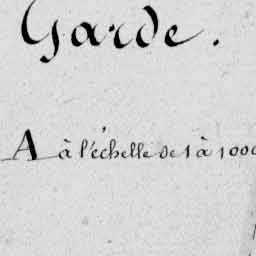 Garde.
A à l'échelle de 1 à 1000